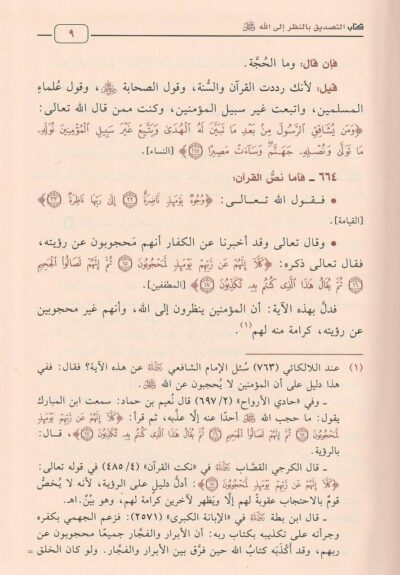 كتاب التصديق بالنظر إلى الله ﷻ
٩
فإن قال: وما الحُجَّة.
قيل: لأنك رددت القرآن والسُّنة، وقول الصحابة ﷺ، وقول عُلماءِ
المسلمين، واتبعت غير سبيل المؤمنين، وكنت ممن قال الله تعالى:
﴿وَمَن يُشَاقِقِ ٱلرَّسُولَ مِنۢ بَعْدِ مَا تَبَيَّنَ لَهُ ٱلْهُدَىٰ وَيَتَّبِعْ غَيْرَ سَبِيلِ ٱلْمُؤْمِنِينَ نُوَلِّهِۦ
مَا تَوَلَّىٰ وَنُصْلِهِۦ جَهَنَّمَ وَسَآءَتْ مَصِيرًا ۝١١٥﴾ [النساء].
٦٦٤ ـ فأما نصُّ القرآن:
• فـقـول الله تـعـالـى: ﴿وُجُوهٌ يَوْمَئِذٍ نَّاضِرَةٌ ۝٢٢ إِلَىٰ رَبِّهَا نَاظِرَةٌ ۝٢٣﴾
[القيامة].
• وقال تعالى وقد أخبرنا عن الكفار أنهم مَحجوبون عن رؤيته،
فقال تعالى ذكره: ﴿كَلَّآ إِنَّهُمْ عَن رَّبِّهِمْ يَوْمَئِذٍ لَّمَحْجُوبُونَ ۝١٥ ثُمَّ إِنَّهُمْ لَصَالُوا۟ ٱلْجَحِيمِ
۝١٦ ثُمَّ يُقَالُ هَٰذَا ٱلَّذِى كُنتُم بِهِۦ تُكَذِّبُونَ ۝١٧﴾ [المطففين].
فدلَّ بهذه الآية: أن المؤمنين ينظرون إلى الله، وأنهم غير محجوبين
عن رؤيته، كرامة منه لهم(١).
(١) عند اللالكائي (٧٦٣) سُئل الإمام الشافعي رحمه الله عن هذه الآية؟ فقال: ففي
هذا دليل على أن المؤمنين لا يُحجبون عن الله ﷻ.
ـ وفي «حادي الأرواح» (٦٩٧/٢) قال نُعيم بن حماد: سمعت ابن المبارك
يقول: ما حجب الله ﷻ أحدًا عنه إلَّا عذَّبه، ثم قرأ: ﴿كَلَّآ إِنَّهُمْ عَن رَّبِّهِمْ يَوْمَئِذٍ
لَّمَحْجُوبُونَ ۝١٥ ثُمَّ إِنَّهُمْ لَصَالُوا۟ ٱلْجَحِيمِ ۝١٦ ثُمَّ يُقَالُ هَٰذَا ٱلَّذِى كُنتُم بِهِۦ تُكَذِّبُونَ ۝١٧﴾، قـال:
بالرؤية.
ـ قال الكرجي القصَّاب رحمه الله في «نكت القرآن» (٤٨٥/٤) في قوله تعالى:
﴿كَلَّآ إِنَّهُمْ عَن رَّبِّهِمْ يَوْمَئِذٍ لَّمَحْجُوبُونَ ۝١٥﴾: أدلُّ دليل على الرؤية، لأنه لا يُخصُّ
قومٌ بالاحتجاب عقوبةً لهم إلَّا ويَظهر لآخرين كرامة لهم، وهو بيِّنٌ.اهـ.
ـ قال ابن بطة رحمه الله في «الإبانة الكبرى» (٢٥٧١): فزعم الجهمي بكفره
وجرأته على تكذيبه بكتاب ربه: أن الأبرار والفجَّار جميعًا محجوبون عن
ربهم، وقد أكْذَبَه كتابُ الله حين فرَّق بين الأبرار والفجَّار. ولو كان الخلق =